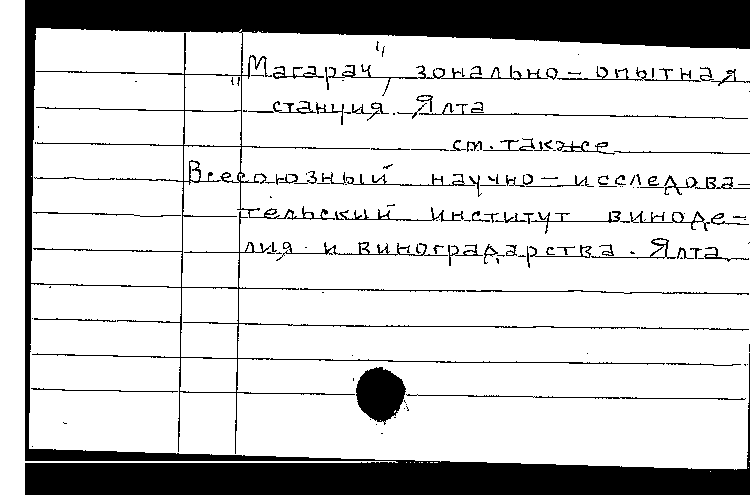 "Магарач", зонально-опытная
станция. Ялта
см. также
Всесоюзный научно-исследова-
тельский институт виноде-
лия и виноградарства. Ялта.